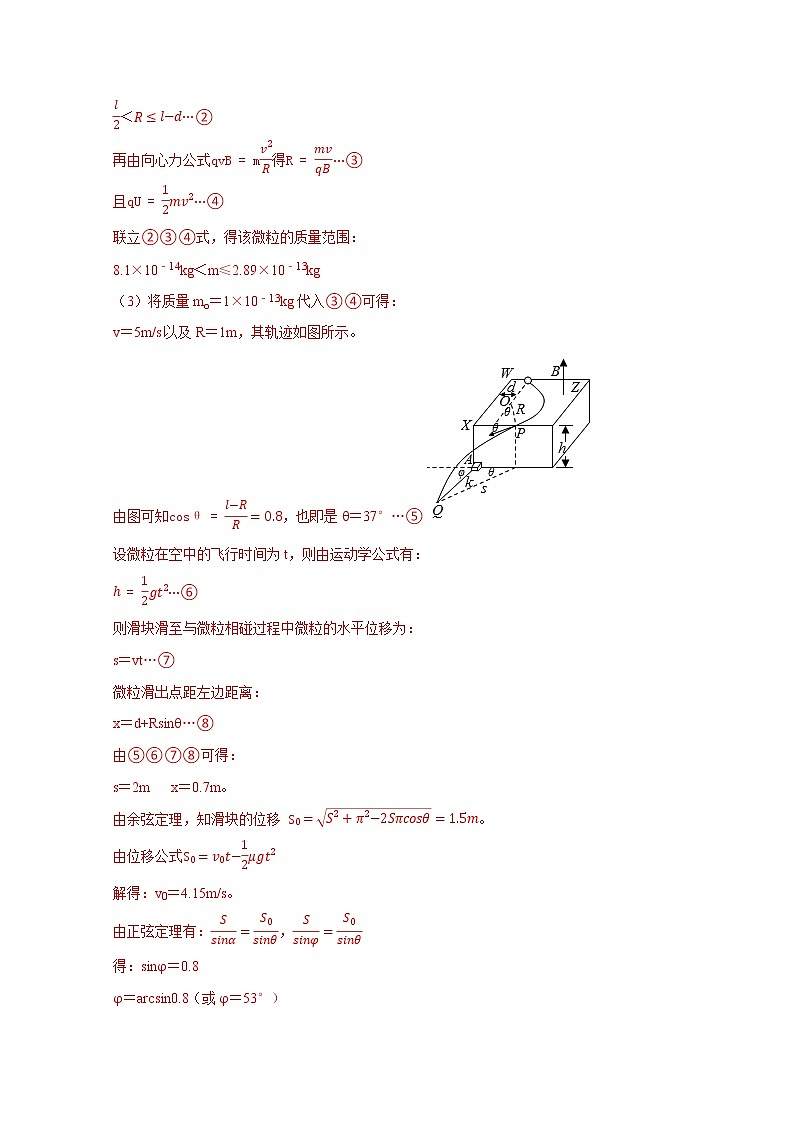 l/2＜R≤l−d…②
再由向心力公式qvB = mv²/R得R = mv/qB…③
且qU = 1/2mv²…④
联立②③④式，得该微粒的质量范围：
8.1×10﹣14kg＜m≤2.89×10﹣13kg
（3）将质量 mo＝1×10﹣13kg 代入③④可得：
v＝5m/s以及 R＝1m，其轨迹如图所示。
W
B
d
Z
O
θ
R
X
θ
P
h
A
φ
θ
k
s
Q
由图可知cos θ = l−R/R＝0.8，也即是 θ＝37°…⑤
设微粒在空中的飞行时间为 t，则由运动学公式有：
h = 1/2gt²…⑥
则滑块滑至与微粒相碰过程中微粒的水平位移为：
s＝vt…⑦
微粒滑出点距左边距离：
x＝d+Rsinθ…⑧
由⑤⑥⑦⑧可得：
s＝2m x＝0.7m。
由余弦定理，知滑块的位移 S₀＝√S²＋π²−2Sπcosθ＝1.5m。
由位移公式S₀＝v₀t−1/2μgt²
解得：v₀＝4.15m/s。
由正弦定理有：S/sinα＝S₀/sinθ，S/sinφ＝S₀/sinθ
得：sinφ＝0.8
φ＝arcsin0.8（或 φ＝53°）